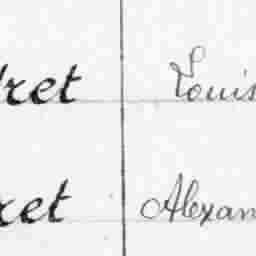 ret Louis
ret Alexan